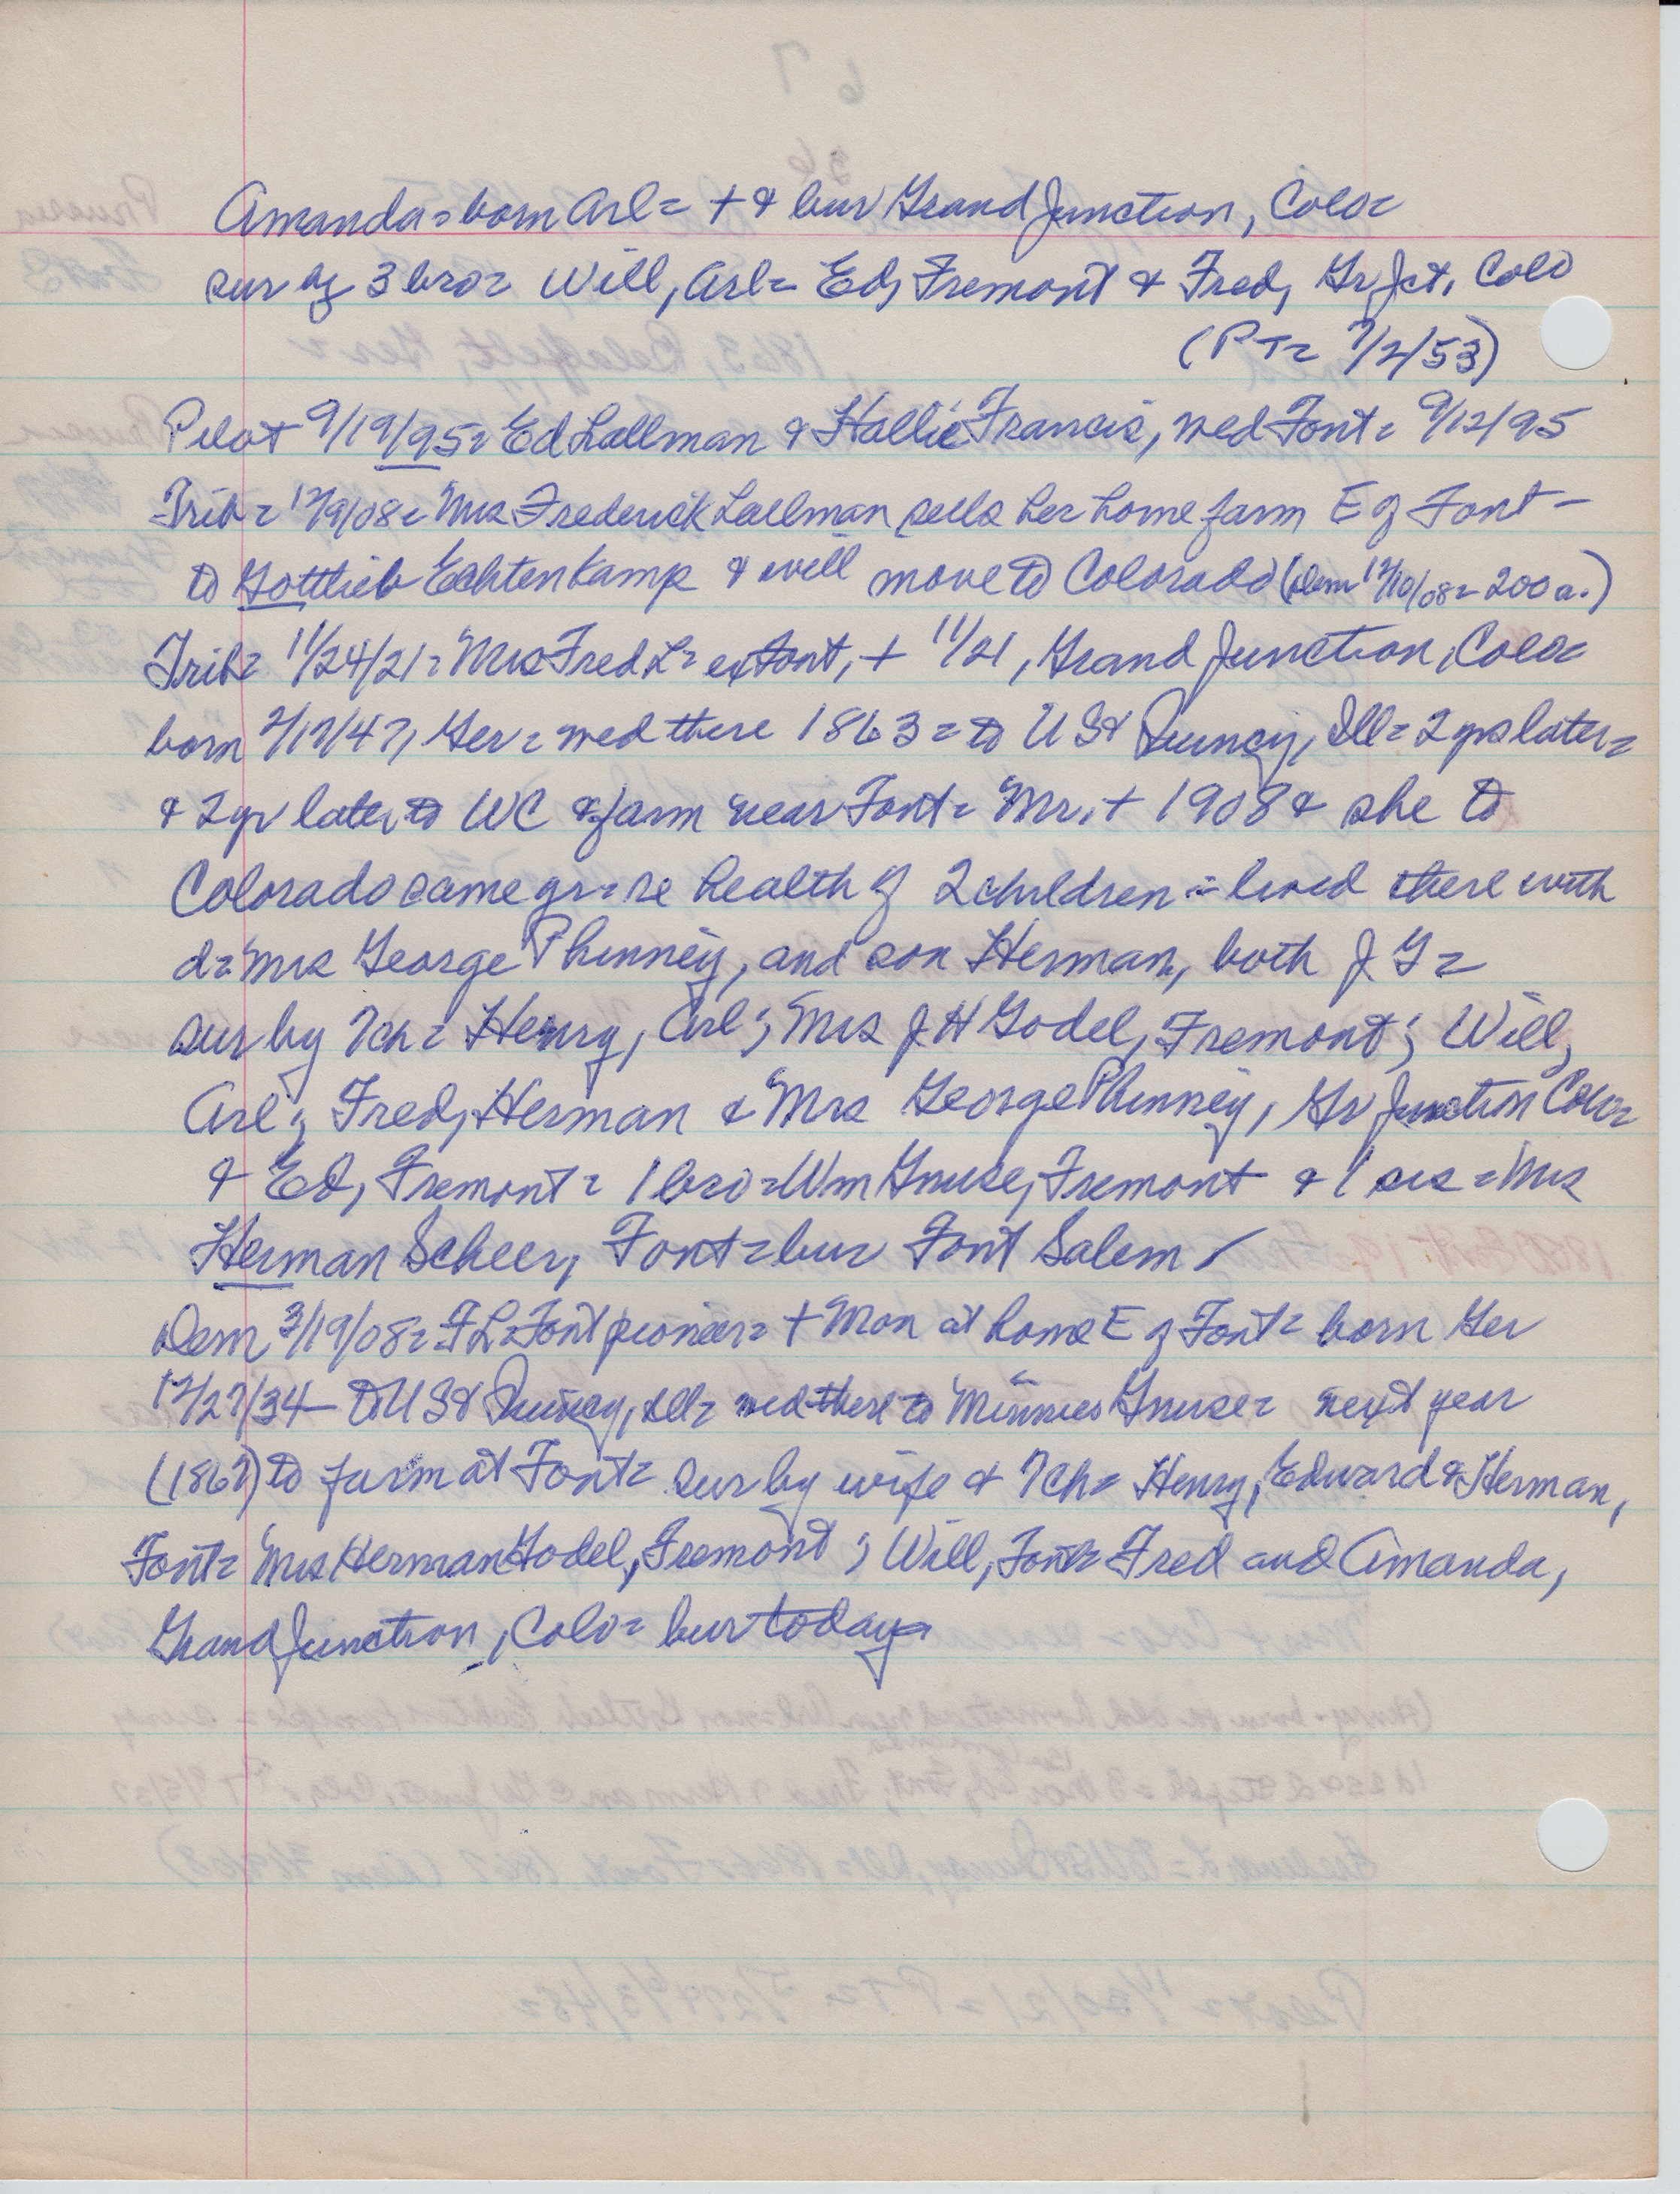 Amanda = born Arl = + & bur Grand Junction, Colo =
sur by 3 bro = Will, Arl = Ed, Fremont & Fred, Gr Jct, Colo
(PT = 7/2/53)
Pilot 9/19/95 = Ed Lallman & Hallie Francis, wed Font = 9/12/95
Trib = 12/9/08 = Mrs Frederick Lallman sells her home farm E of Font -
to Gottlieb Echtenkamp & will move to Colorado (Dem 12/10/08 = 200 a.)
Trib = 11/24/21 = Mrs Fred L = ex Font, + 11/21, Grand Junction, Colo =
born 2/17/47, Ger = wed there 1863 = to US & Quincy, Ill = 2 yrs later =
& 2 yr later to WC & farm near Font = Mr. + 1908 & she to
Colorado same yr = re health of 2 children = lived there with
d = Mrs George Phinney, and son Herman, both J G =
sur by 7 ch = Henry, Arl; Mrs J H Godel, Fremont; Will,
Arl; Fred, Herman & Mrs George Phinney, Gr Junction Colo =
& Ed, Fremont = 1 bro = Wm Gnuse, Fremont & 1 sis = Mrs
Herman Scheer, Font = bur Font Salem
Dem 3/19/08 = FL = Font pioneer = + Mon at home E of Font = born Ger
12/27/34 - to US & Quincy, Ill = wed there to Minnie Gnuse = next year
(1867) to farm at Font = sur by wife & 7 ch = Henry, Edward & Herman,
Font = Mrs Herman Godel, Fremont; Will, Font = Fred and Amanda,
Grand Junction, Colo = bur today =